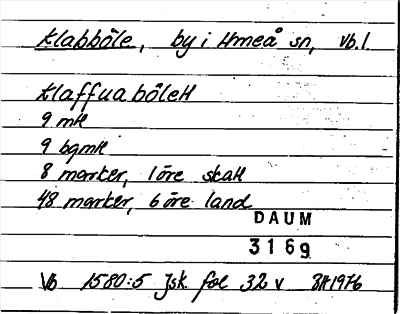 Klabböle, by i Umeå sn, Vb.l
Klaffuaböle
9 mtl
9 bgmtl
8 marker, 1 öre skatt
48 marker, 6 öre land
DAUM
3169
Vb 1580:5 Jsk fol 32 v 1976